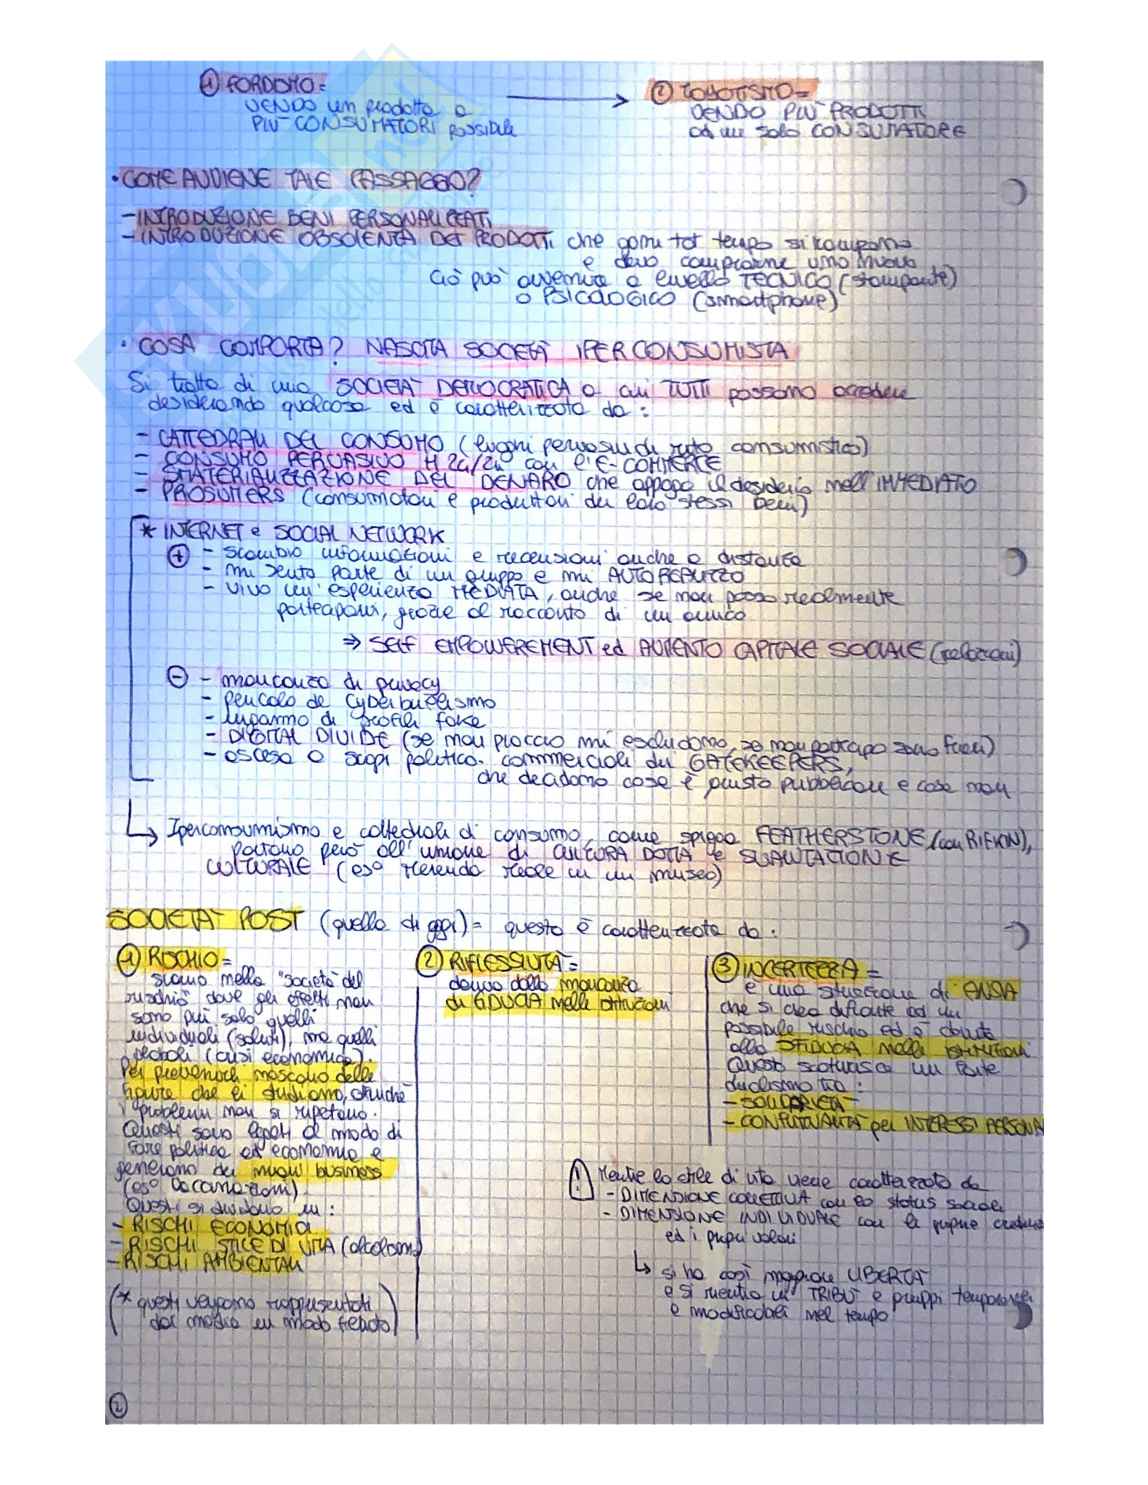 ① FORDISMO= → ② TOYOTISMO=
VENDO un prodotto a
PIÙ CONSUMATORI possibile
VENDO PIÙ PRODOTTI
ad un solo CONSUMATORE
• COME AVVIENE TALE PASSAGGIO?
- INTRODUZIONE BENI PERSONALIZZATI
- INTRODUZIONE OBSOLENZA DEI PRODOTTI che ogni tot tempo si rompono
e devo comprarne uno nuovo
Ciò può avvenire a livello TECNICO (stampante)
o PSICOLOGICO (smartphone)
• COSA COMPORTA? NASCITA SOCIETÀ IPERCONSUMISTA
Si tratta di una SOCIETÀ DEMOCRATICA a cui TUTTI possono accedere
desiderando qualcosa ed è caratterizzata da:
- CATTEDRALI DEL CONSUMO (luoghi pervasivi di rito consumistico)
- CONSUMO PERVASIVO H 24/24 con l'E-COMMERCE
- SMATERIALIZZAZIONE DEL DENARO che appaga il desiderio nell'IMMEDIATO
- PROSUMERS (consumatori e produttori dei loro stessi beni)
* INTERNET e SOCIAL NETWORK
⊕ - scambio informazioni e recensioni anche a distanza
- mi sento parte di un gruppo e mi AUTOREALIZZO
- vivo un'esperienza MEDIATA, anche se non posso realmente
parteciparvi, grazie al racconto di un amico
⇒ SELF EMPOWEREMENT ed AUMENTO CAPITALE SOCIALE (relazioni)
⊖ - mancanza di privacy
- pericolo de cyberbullismo
- inganno di profili fake
- DIGITAL DIVIDE (se non piaccio mi escludono, se non partecipo sono fuori)
- ascesa a scopi politico-commerciali dei GATEKEEPERS,
che decidono cosa è giusto pubblicare e cosa non
↳ Iperconsumismo e cattedrali di consumo, come spiega FEATHERSTONE (con RIFKIN),
portano però all'unione di CULTURA DOTTA e SVALUTAZIONE
CULTURALE (es° merenda reale in un museo)
SOCIETÀ POST (quella di oggi) = questa è caratterizzata da:
① RISCHIO=
siamo nella "società del
rischio" dove gli effetti non
sono più solo quelli
individuali (salute), ma quelli
globali (crisi economica).
Per prevenirli nascono delle
figure che li studiano, affinché
i problemi non si ripetano.
Questi sono legati al modo di
fare politica ed economia e
generano dei nuovi business
(es° vaccinazioni)
Questi si dividono in:
- RISCHI ECONOMICI
- RISCHI STILE DI VITA (alcolismo)
- RISCHI AMBIENTALI
(* questi vengono rappresentati
dai media in modo filtrato)
② RIFLESSIVITÀ=
deriva dalla mancanza
di FIDUCIA nelle istituzioni
③ INCERTEZZA=
è una situazione di ANSIA
che si crea difronte ad un
possibile rischio ed è dovuta
alla SFIDUCIA nelle istituzioni
Questo scaturisce un forte
dualismo tra:
- SOLIDARIETÀ
- CONFLITTUALITÀ per INTERESSI PERSONA
! Mentre lo stile di vita viene caratterizzato da
- DIMENSIONE COLLETTIVA con lo status sociale
- DIMENSIONE INDIVIDUALE con le proprie credenze
ed i propri valori
↳ si ha così maggiore LIBERTÀ
e si rientra in TRIBÙ e gruppi temporanei
e modificabili nel tempo
②